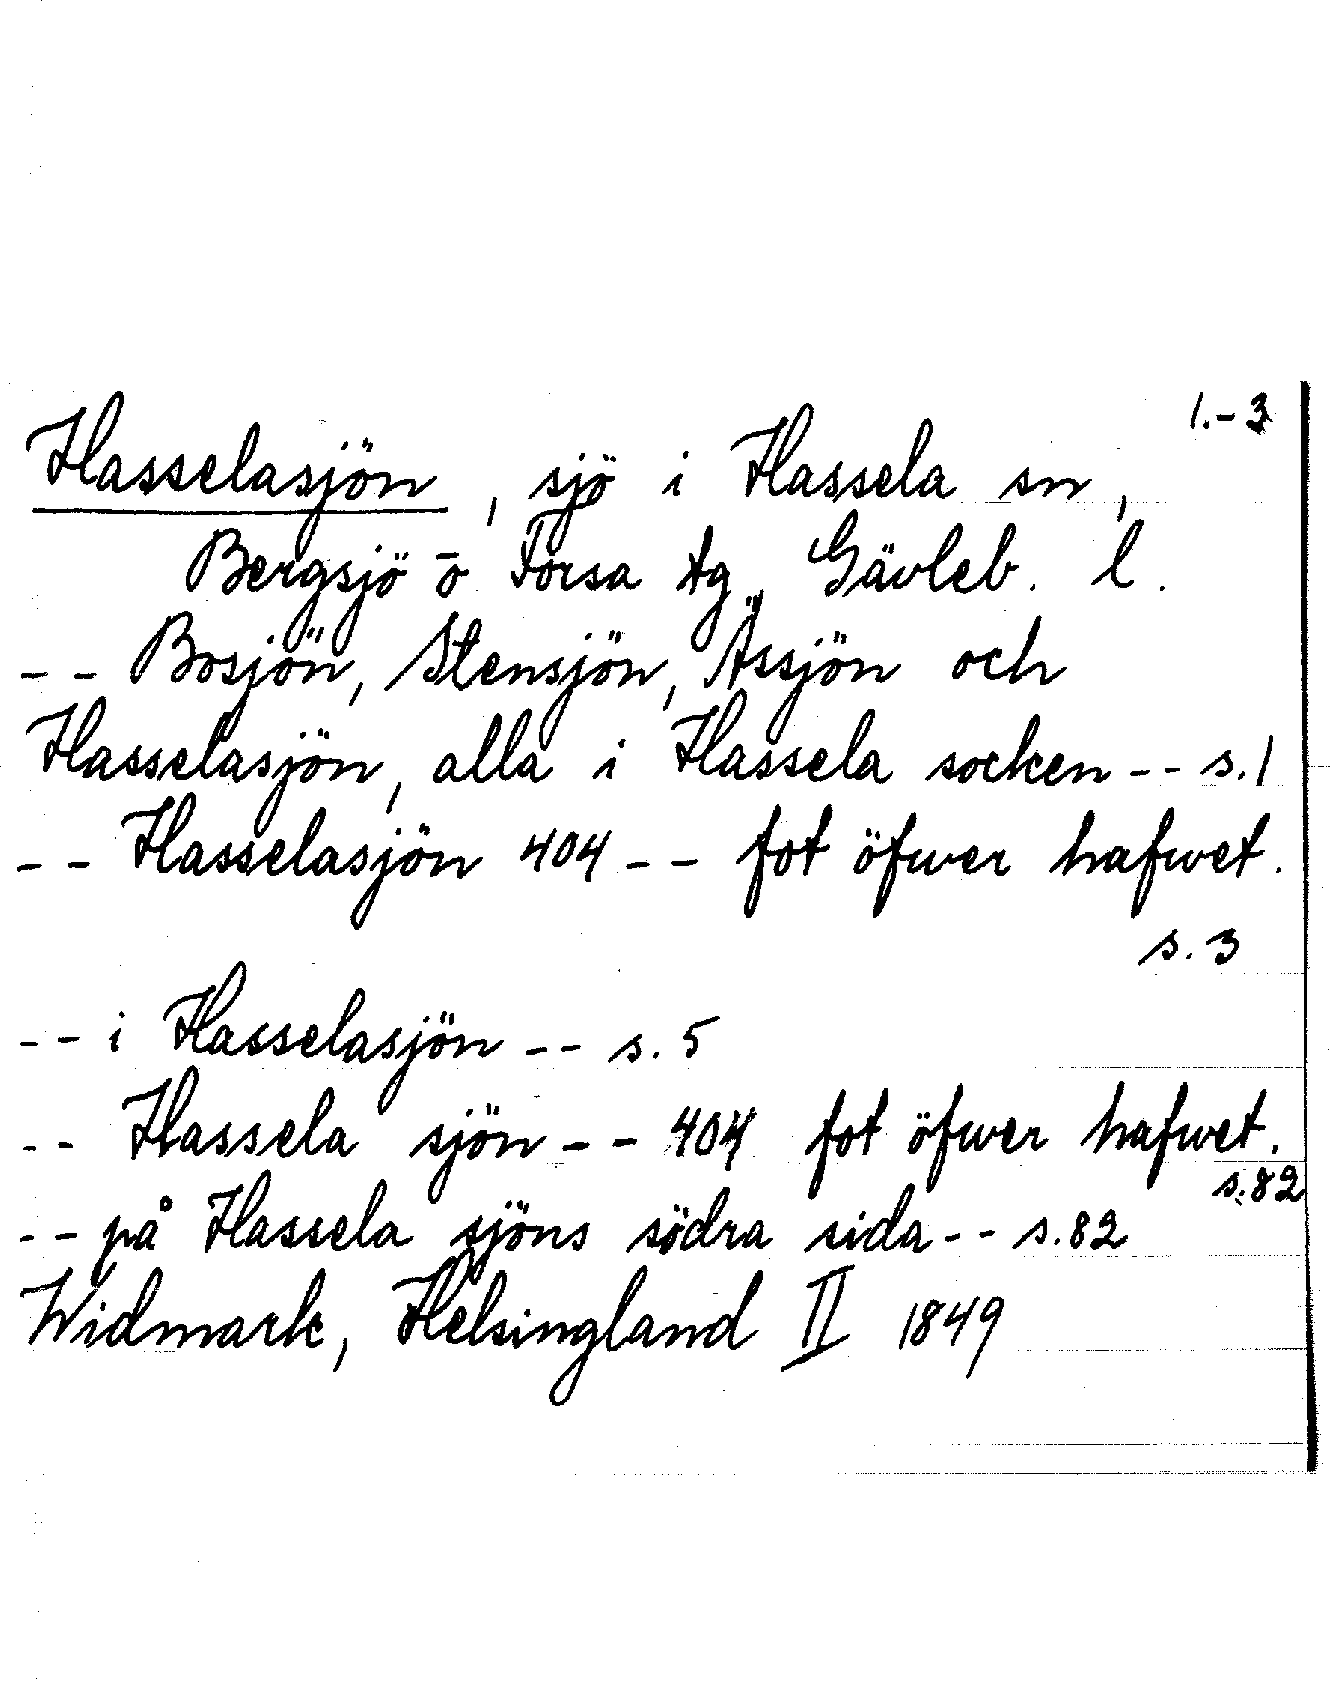 1.-3
Hasselasjön, sjö i Hassela sn,
Bergsjö o Forsa tg, Gävleb. l.
-- Bosjön, Stensjön, Ässjön och
Hasselasjön, alla i Hassela socken -- s.1
-- Hasselasjön 404 -- fot öfwer hafwet.
s.3
-- i Hasselasjön -- s.5
-- Hassela sjön -- 404 fot öfwer hafwet.
s.82
-- på Hassela sjöns södra sida -- s.82
Widmark, Helsingland II 1849